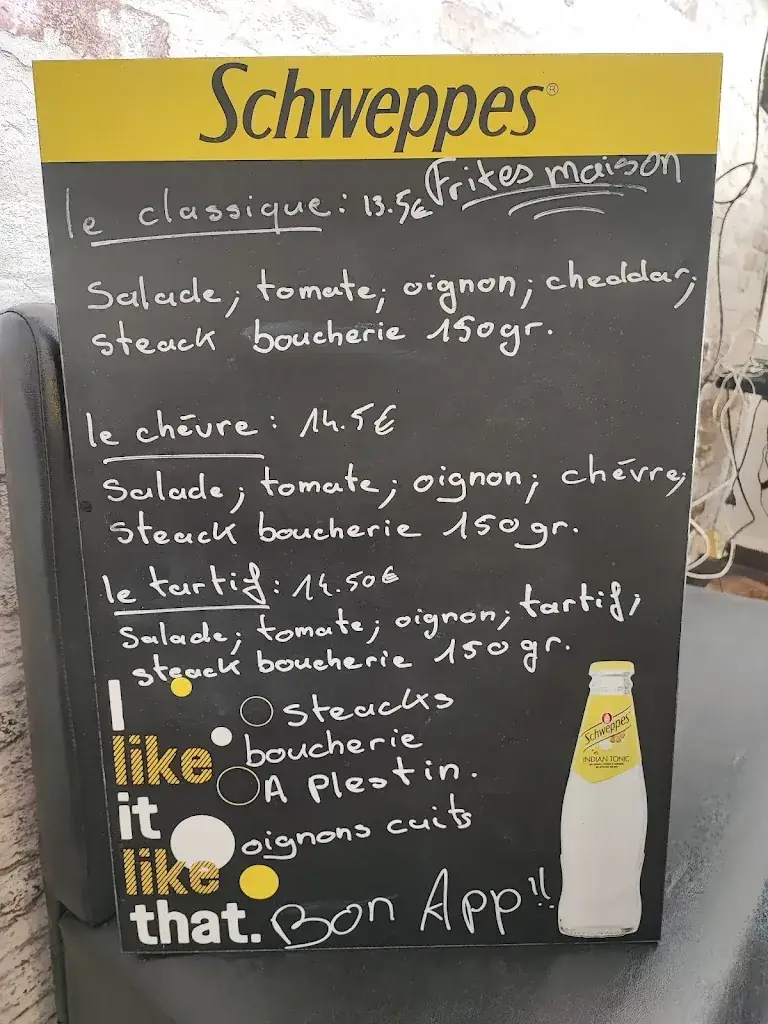 Schweppes®
le classique: 13.5€ Frites maison
Salade; tomate; oignon; cheddar;
steack boucherie 150gr.
le chévre: 14.5€
Salade; tomate; oignon; chévre;
Steack boucherie 150gr.
le tartif: 14.50€
Salade; tomate; oignon; tartif;
steack boucherie 150gr.
Steacks
boucherie
A Plestin.
oignons cuits
Bon App!!
I
like
it
like
that.
Schweppes
INDIAN TONIC